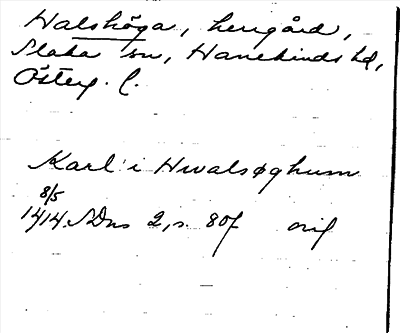 Halshöga, herrgård,
Slaka sn, Hanekinds hd,
Österg. l.
Karl i Hwalsøghum
8/5
1414. SDns 2, s. 807 orig